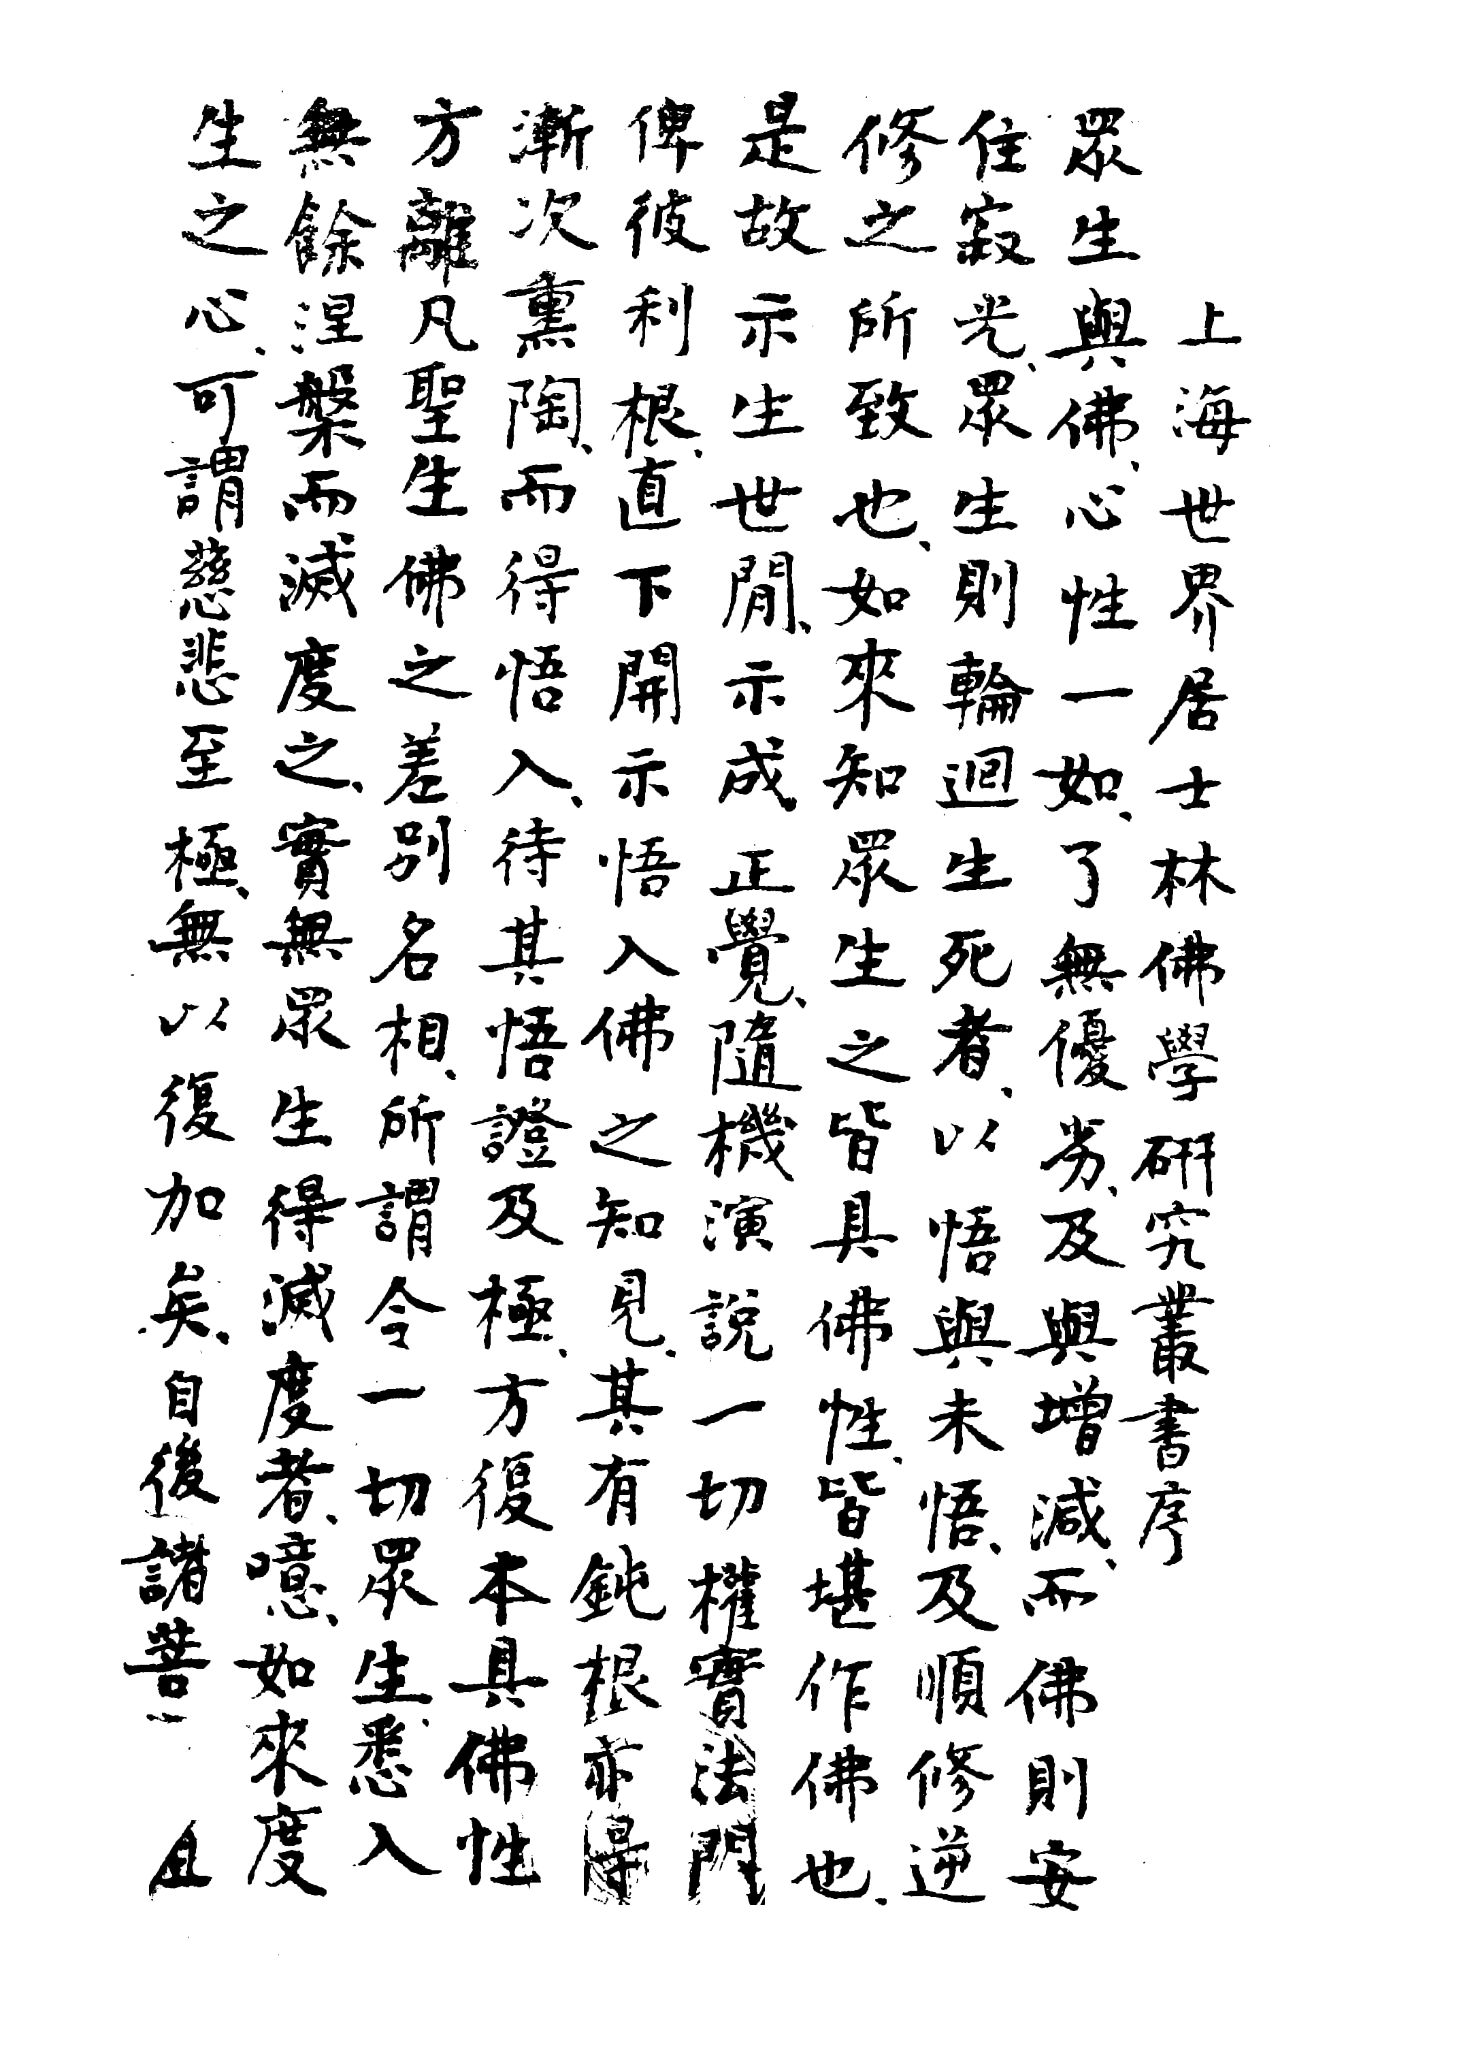 上海世界居士林佛學研究叢書序
眾生與佛、心性一如、了無優劣、及與增減、而佛則安
住寂光、眾生則輪迴生死者、以悟與未悟、及順修逆
修之所致也、如來知眾生之皆具佛性、皆堪作佛也、
是故示生世間、示成正覺、隨機演說一切權實法門
俾彼利根、直下開示悟入佛之知見、其有鈍根亦得
漸次熏陶、而得悟入、待其悟證及極、方復本具佛性
方離凡聖生佛之差別名相、所謂令一切眾生、悉入
無餘涅槃而滅度之、實無眾生得滅度者、噫、如來度
生之心、可謂慈悲至極、無以復加矣、自後諸菩